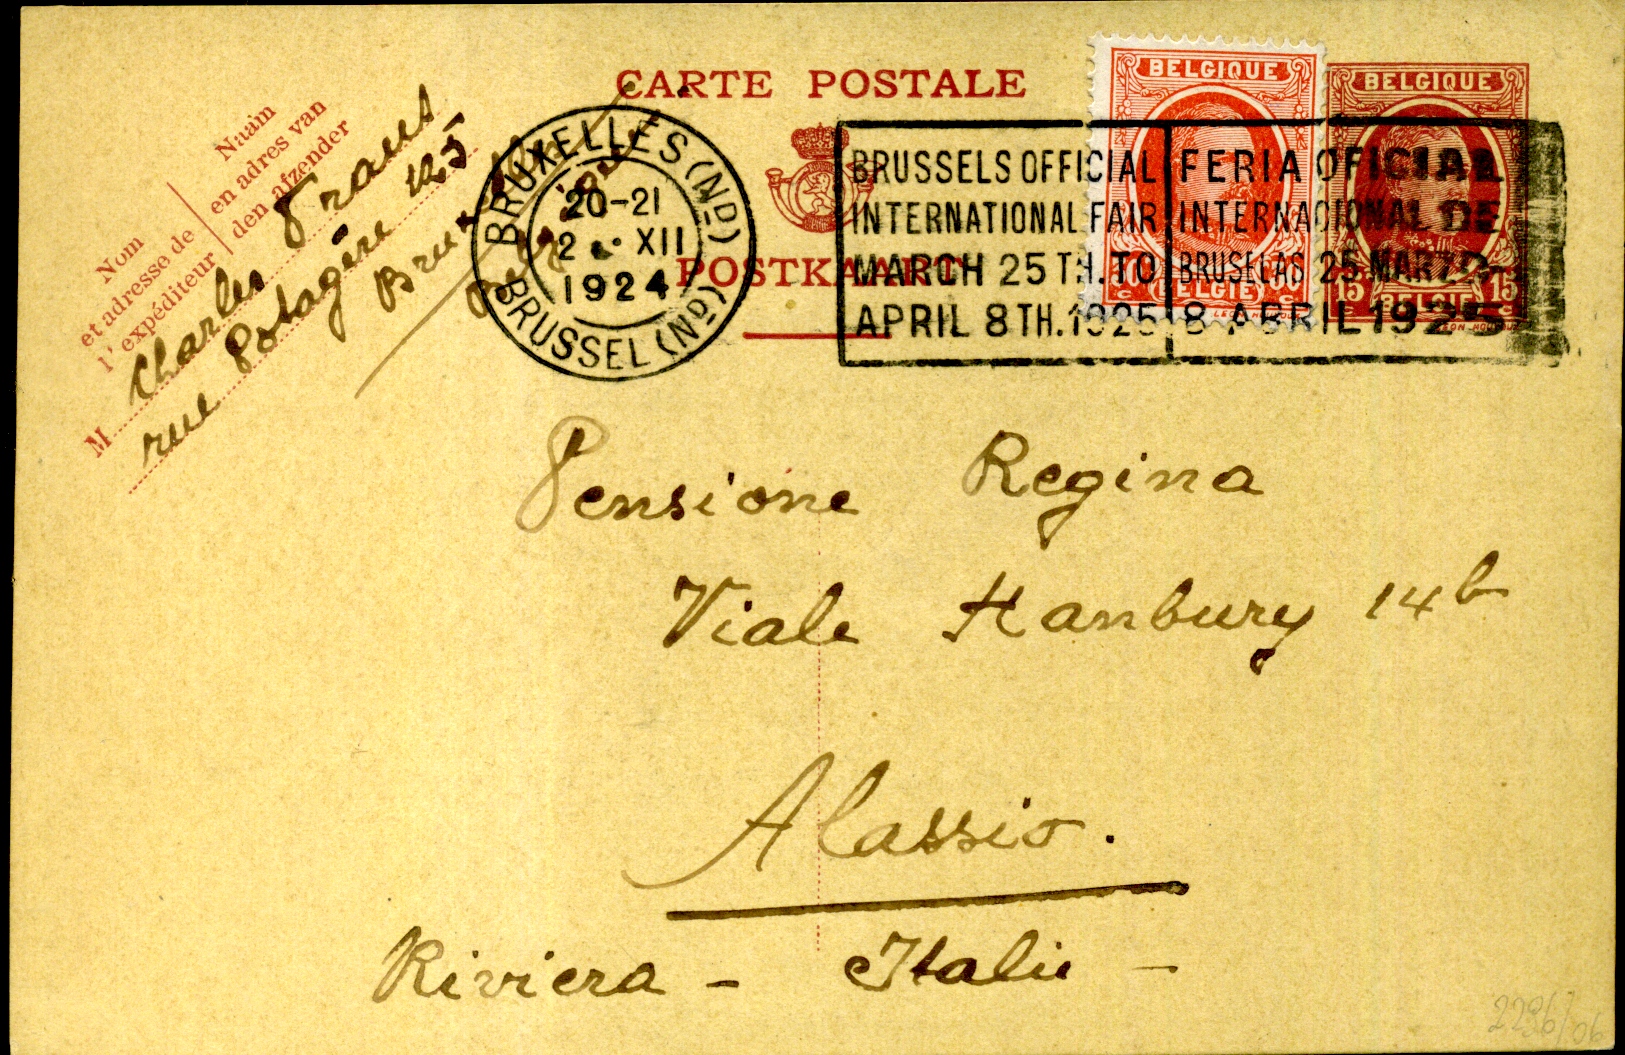 CARTE POSTALE
POSTKAART
Nom
et adresse de
l'expéditeur
Naam
en adres van
den afzender
M Charles Frans
rue Potagère 125
Bruxelles
Belgique
BRUXELLES (ND)
20-21
2 XII
1924
BRUSSEL (Nd)
BRUSSELS OFFICIAL
INTERNATIONAL FAIR
MARCH 25 TH. TO
APRIL 8 TH. 1925
FERIA OFICIAL
INTERNACIONAL DE
BRUSELAS 25 MARZO
8 ABRIL 1925
BELGIQUE
BELGIË
BELGIQUE
15 c 15 c
BELGIE
Pensione Regina
Viale Hanbury 14b
Alassio.
Riviera - Italie -